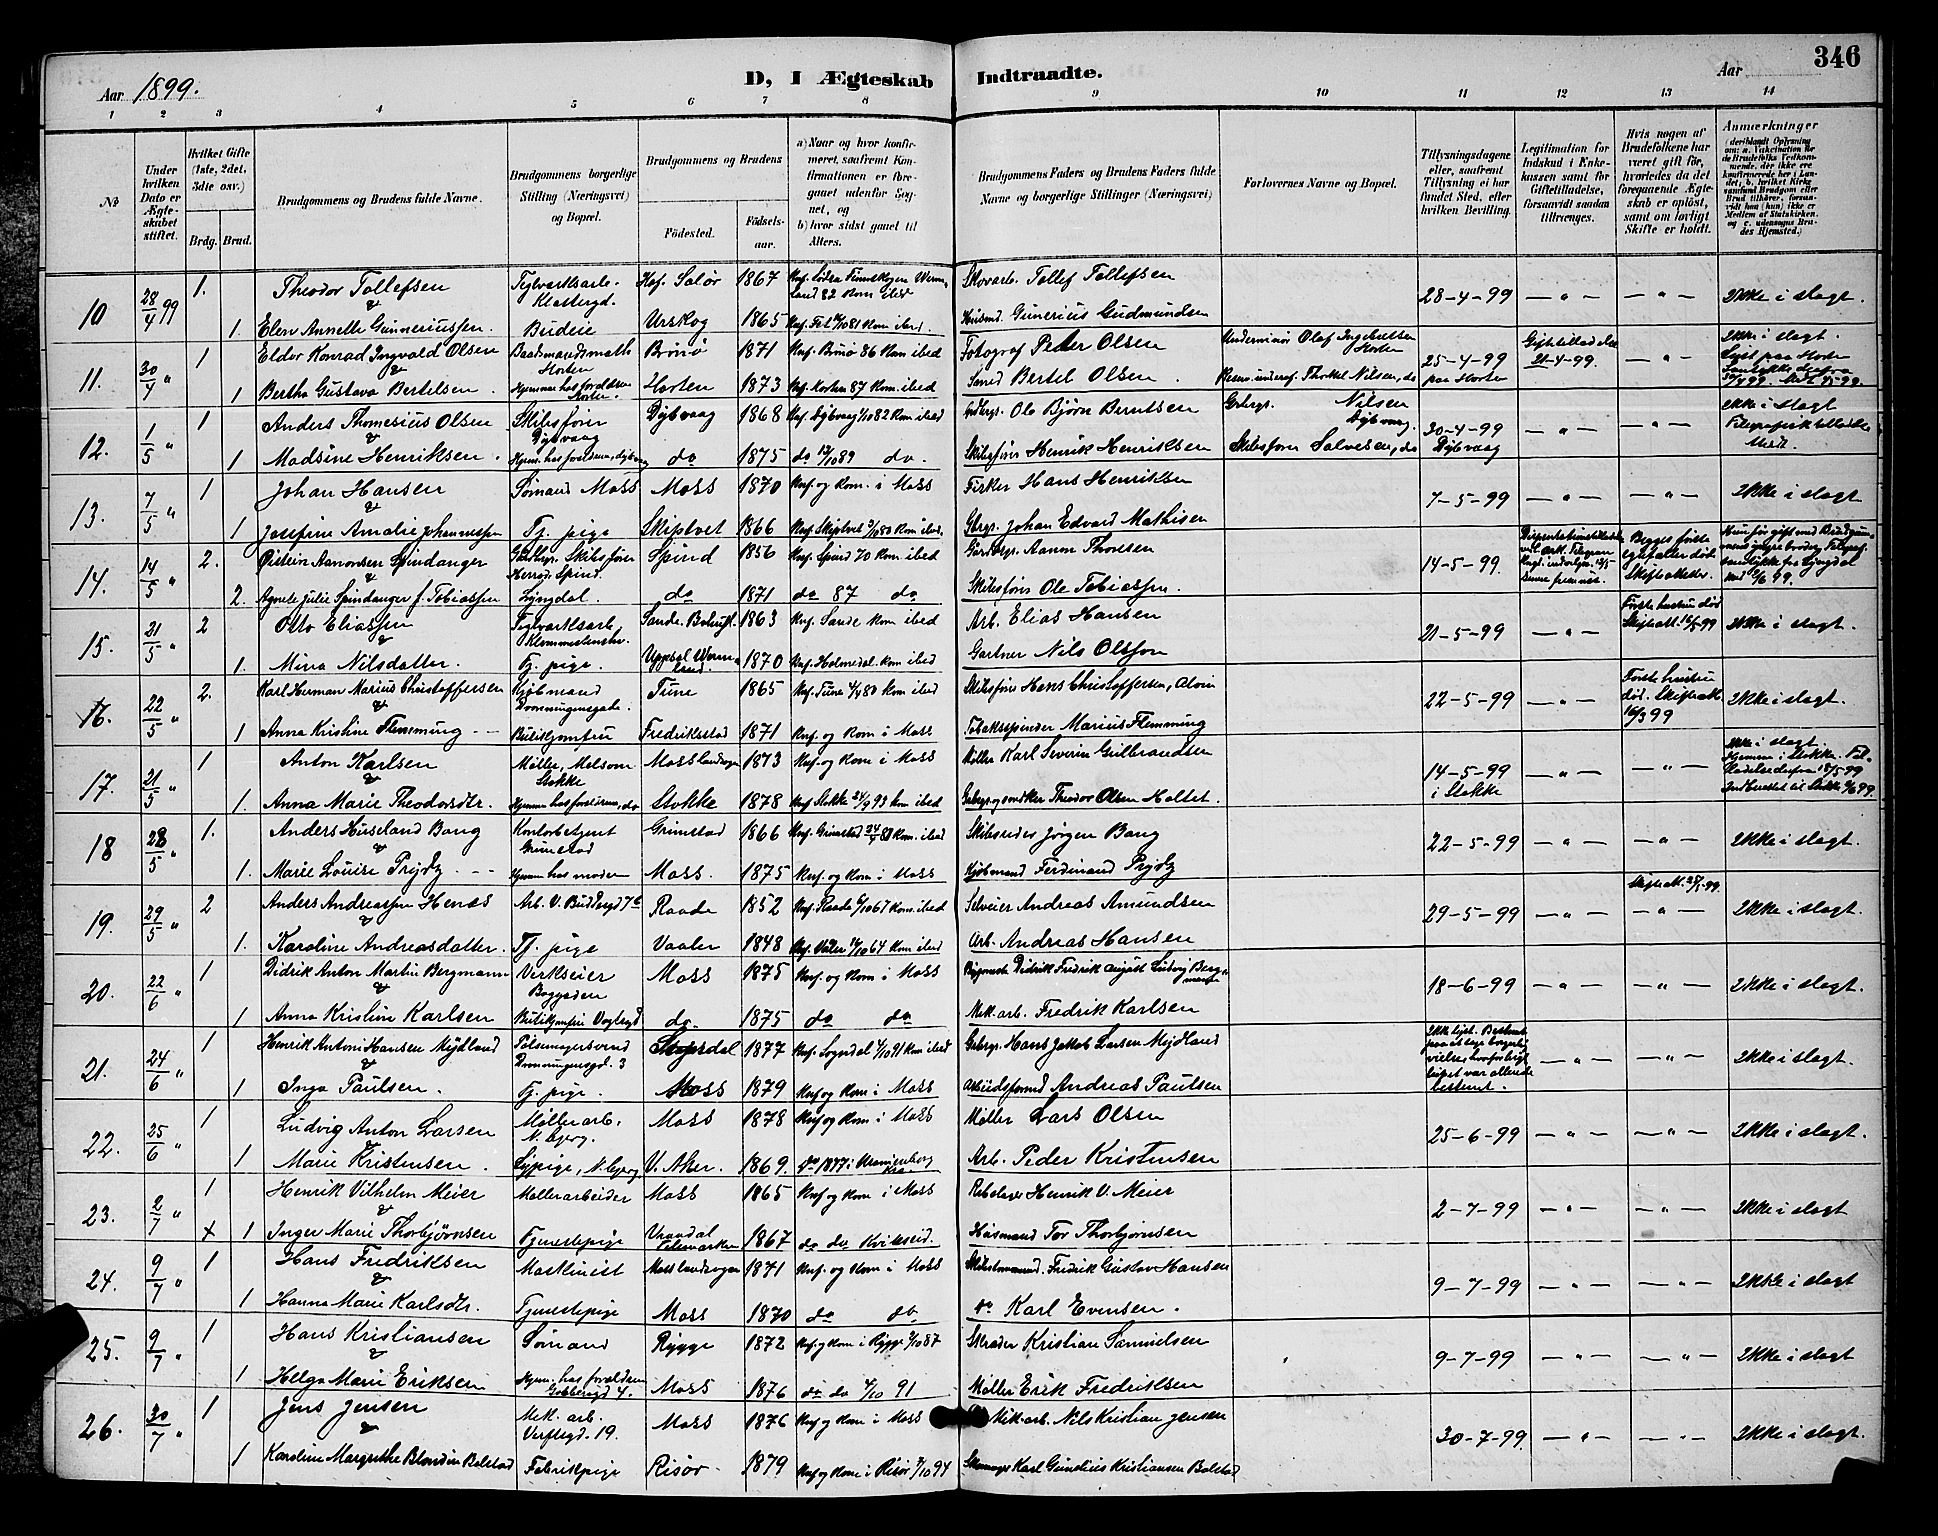 346
Aar 1899.
D, I Ægteskab Indtraadte.
Aar
1 2 3 4 5 6 7 8 9 10 11 12 13 14
№
Under hvilken Dato er Ægteskabet stiftet.
Hvilket Gifte (1ste, 2det, 3die osv.)
Brdg. Brud.
Brudgommens og Brudens fulde Navne.
Brudgommens borgerlige Stilling (Næringsvei) og Bopæl.
Brudgommens og Brudens
Födested.
Födselsaar.
a) Naar og hvor konfirmeret, saafremt Konfirmationen er foregaaet udenfor Sognet, og
b) hvor sidst gaaet til Alters.
Brudgommens Faders og Brudens Faders fulde Navne og borgerlige Stillinger (Næringsvei)
Forlovernes Navne og Bopæl.
Tillysningsdagene eller, saafremt Tillysning ei har fundet Sted, efter hvilken Bevilling.
Legitimation for Indskud i Enkekassen samt for Giftetilladelse, forsaavidt saadan tiltrænges.
Hvis nogen af Brudefolkene har været gift för, hvorledes da det foregaaende Ægteskab er oplöst, samt om lovligt Skifte er holdt.
Anmærkninger
10 28/4 99 1. Theodor Tollefsen Teglværksarb. Hof. Solør 1867 Skovarb. Tollef Tollefsen 28-4-99 — " — — " — Ikke i slægt.
&
1. Elen Annette Gunneriussen. Budeie Urskog 1865 Husmd. Gunerius Gudmundsen
11. 30/4 " 1 Eldor Konrad Ingvald Olsen Baadsmandsmath Horten Brönö 1871 Knf. Brönö 86 Kom ibed Fotograf Peder Olsen Horten 25-4-99 paa Horten Giftetilladelse 21-4-99. — " — Ikke i slægt.
&
1 Bertha Gustava Bertelsen. Hjemme hos forældrene Horten. Horten 1873 Knf. Horten 87 Kom. ibed Bertel Olsen. Thorkel Nilsen, do
12. 1/5 " 1 Anders Thomesius Olsen Skibsfører Dybvaag Dybvaag 1868 Knf. Dybvaag 1/10 82 Kom ibed Ole Bjørn Berntsen Gbrgr. Nilsen Dybvaag. 30-4-99 Dybvaag — " — — " — Ikke i slægt
&
1 Madsine Henriksen. do 1875 do 12/10 89 do. Skibsfører Henrik Henriksen Skibsförer Salvesen, do
13. 7/5 " 1 Johan Hansen Sømand Moss Moss 1870 Knf. og Kom. i Moss Fisker Hans Henriksen 7-5-99 — " — — " — Ikke i slægt
&
1 Josefine Amalie Johannessen Tj. pige Skiptvet 1866 Knf. Skiptvet 3/10 80 Kom ibed. Gbrgr. Johan Edvard Mathisen
14. 14/5 " 2. Øistein Aanonsen Spindanger Skibsfører Herred Spind. Spind 1856 Knf. Spind 70 Kom ibed Gårdbrgr. Aanon Thorsen 14-5-99. Begges første egtefæller död.
&
2. Agnete Julie Spindanger f. Tobiassen Lyngdal. do 1871 do 87 do Skibsförer Ole Tobiassen.
15. 21/5 " 2 Otto Eliassen Teglværksarb. 1863 Knf. Sande Kom ibed Arb. Elias Hansen 21-5-99 — " — Første hustru död Ikke i slægt.
&
1. Mina Nilsdatter. Tj. pige. 1870 Knf. Holmedal. Kom ibed Gartner Nils Olsson
16. 22/5 " 2. Karl Herman Marius Christoffersen Kjøbmand Dronningensgade. Tune 1865 Knf. Tune 80 Kom ibed Skibsförer Hans Christoffersen, 22-5-99 — " — Første hustru død. Ikke i slægt.
&
1 Anna Kristine Flemming Butikjomfru Fredrikstad 1871 Knf. og Kom i Moss Tobaksspinder Marius Flemming
17. 21/5 " 1 Anton Karlsen Møller, Melsom Stokke Moss landsogn 1873 Knf. og Kom i Moss Møller Karl Severin Gulbrandsen 14-5-99 i Stokke — " — — " — Ikke i slægt
&
1. Anna Marie Theodorsdtr. Stokke 1878 Knf Stokke 24/9 93 Kom ibed Theodor Olsen Holtet.
18 28/5 " 1. Anders Huseland Bang Kontorbetjent Grimstad Grimstad 1866 Kom. ibed Skibsreder Jörgen Bang 22-5-99 — " — — " — Ikke i slægt.
&
1. Marie Louise Prydz Hjemm. hos moder Moss. 1875 Knf. og Kom i Moss Kjøbmand Ferdinand Prydz
19. 29/5 " 2 Anders Andreassen Henæs Raade 1852 Knf. Raade 6/10 67 Kom. ibed Selveier Andreas Amundsen 29-5-99 — " — — " — Ikke i slægt.
&
1. Karoline Andreasdatter. Tj. pige Vaaler 1848 Knf. Våler 64 Kom ibed Arb. Andreas Hansen
20. 22/6 " 1 Didrik Anton Martin Bergmann Verkseier Moss 1875 Knf. og Kom i Moss Didrik Fredrik August Ludvig Bergmann 18-6-99 — " — — " — Ikke i slægt.
&
1 Anna Kristine Karlsen do. 1875 do do Mek. arb. Fredrik Karlsen
21. 24/6 " 1 Henrik Antoni Hansen Mydland Pölsemagersvend Dronningensgd. 3 1877 Knf. Sogndal 91 Kom ibed Gbrgr. Hans Jakob Larsen Mydland — " — — " — Ikke i slægt.
&
1 Inga Paulsen. Tj. pige. Moss 1879 Knf og Kom i Moss Arbeidsformd Andreas Paulsen
22. 25/6 " 1 Ludvig Anton Larsen Møllerarb. Moss 1878 Knf og Kom i Moss Møller Lars Olsen 25-6-99 — " — — " — Ikke i slægt.
&
1 Marie Kristensen. Sypige, V. Aker. 1869. Arb. Peder Kristensen
23. 2/7 " 1 Henrik Vilhelm Meier Møllerarbeider Moss 1865 Knf og Kom i Moss Henrik V. Meier 2-7-99 — " — — " — Ikke i slægt
&
x 1 Inger Marie Thorbjørnsen Tjenestepige Vraadal Telemarken 1867 do do Kviteseid. Husmand Tor Thorbjørnsen
24. 9/7 " 1 Hans Fredriksen Maskinist Moss landsogn 1871 Knf. og Kom i Moss Fredrik Gustav Hansen 9-7-99 — " — — " — Ikke i slægt
&
1 Hanna Marie Karlsdtr. Tjenestepige Moss 1870 do do do Karl Evensen.
25. 9/7 " 1 Hans Kristiansen Sømand Rygge 1872 Knf. og Kom i Rygge 2/10 87 Skræder Kristian Samuelsen 9-7-99 — " — — " — Ikke i slægt
&
1 Helga Marie Eriksen Hjem. hos forældrene Moss 1876 do do 4/10 91 Møller Erik Fredriksen
26. 30/7 " 1 Jens Jensen Mek. arb. Verftsgd. 19. Moss 1876 Knf og Kom i Moss Mek. arb. Nils Kristian Jensen 30-7-99 — " — — " — Ikke i slægt.
&
1 Karoline Margrethe Blondin Bolstad Fabrikpige Risør. 1879 Knf og Kom i Risør 94 Karl Gundius Kristiansen Bolstad